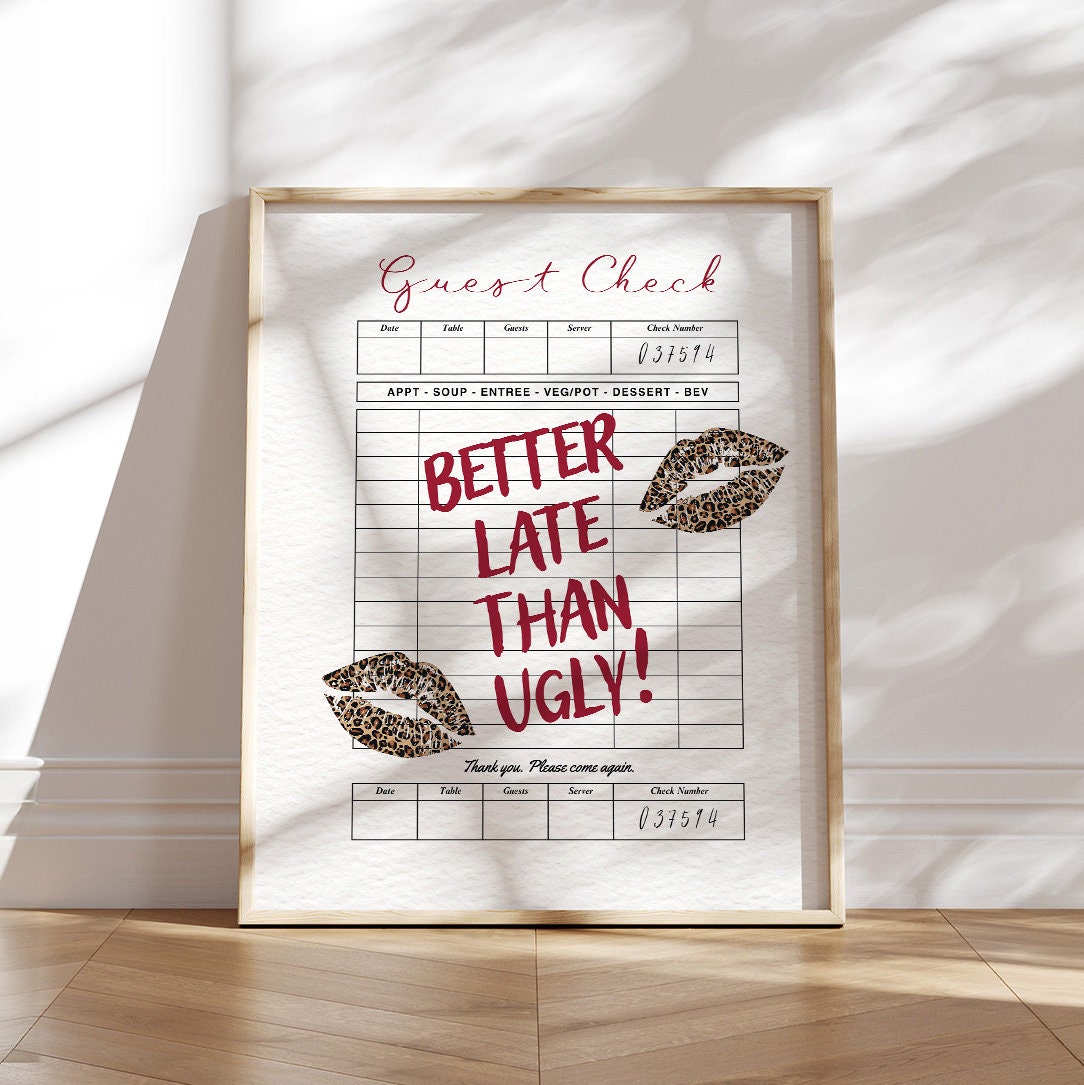 Guest Check
Date Table Guests Server Check Number
037594
APPT - SOUP - ENTREE - VEG/POT - DESSERT - BEV
BETTER
LATE
THAN
UGLY!
Thank you. Please come again.
Date Table Guests Server Check Number
037594